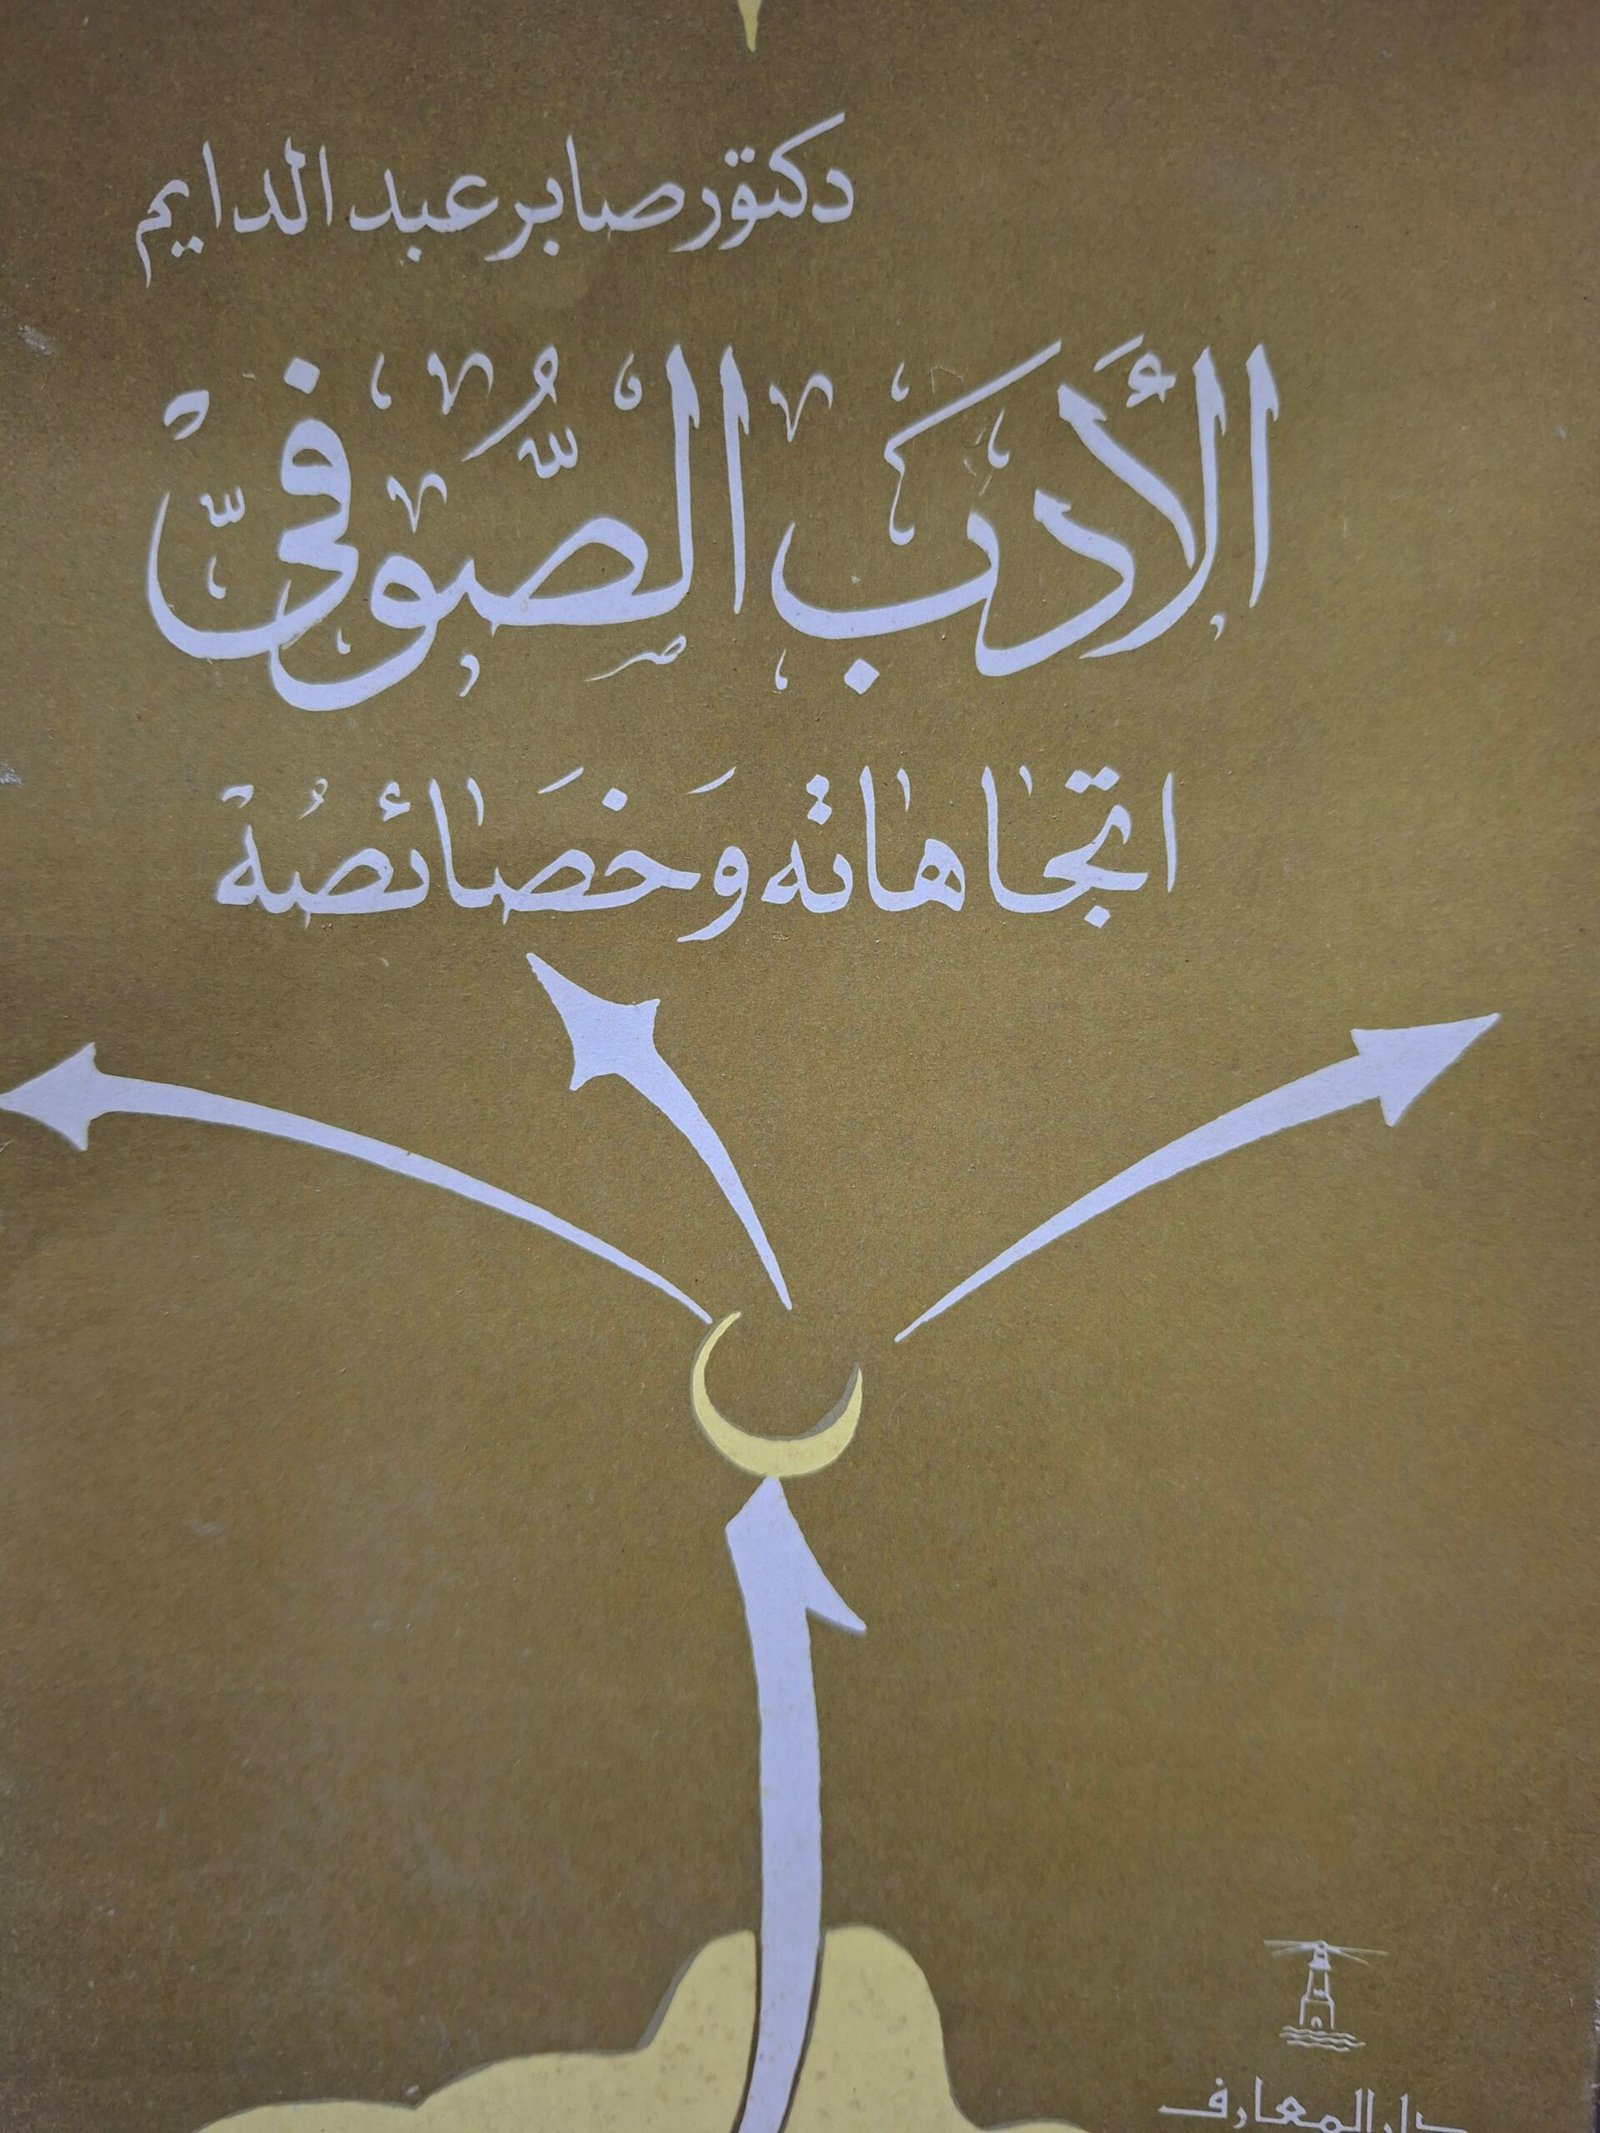 دكتور صابر عبد الدايم
الأدَب الصُّوفىّ
اتجاهاته وَخصَائصُه
دار المعارف